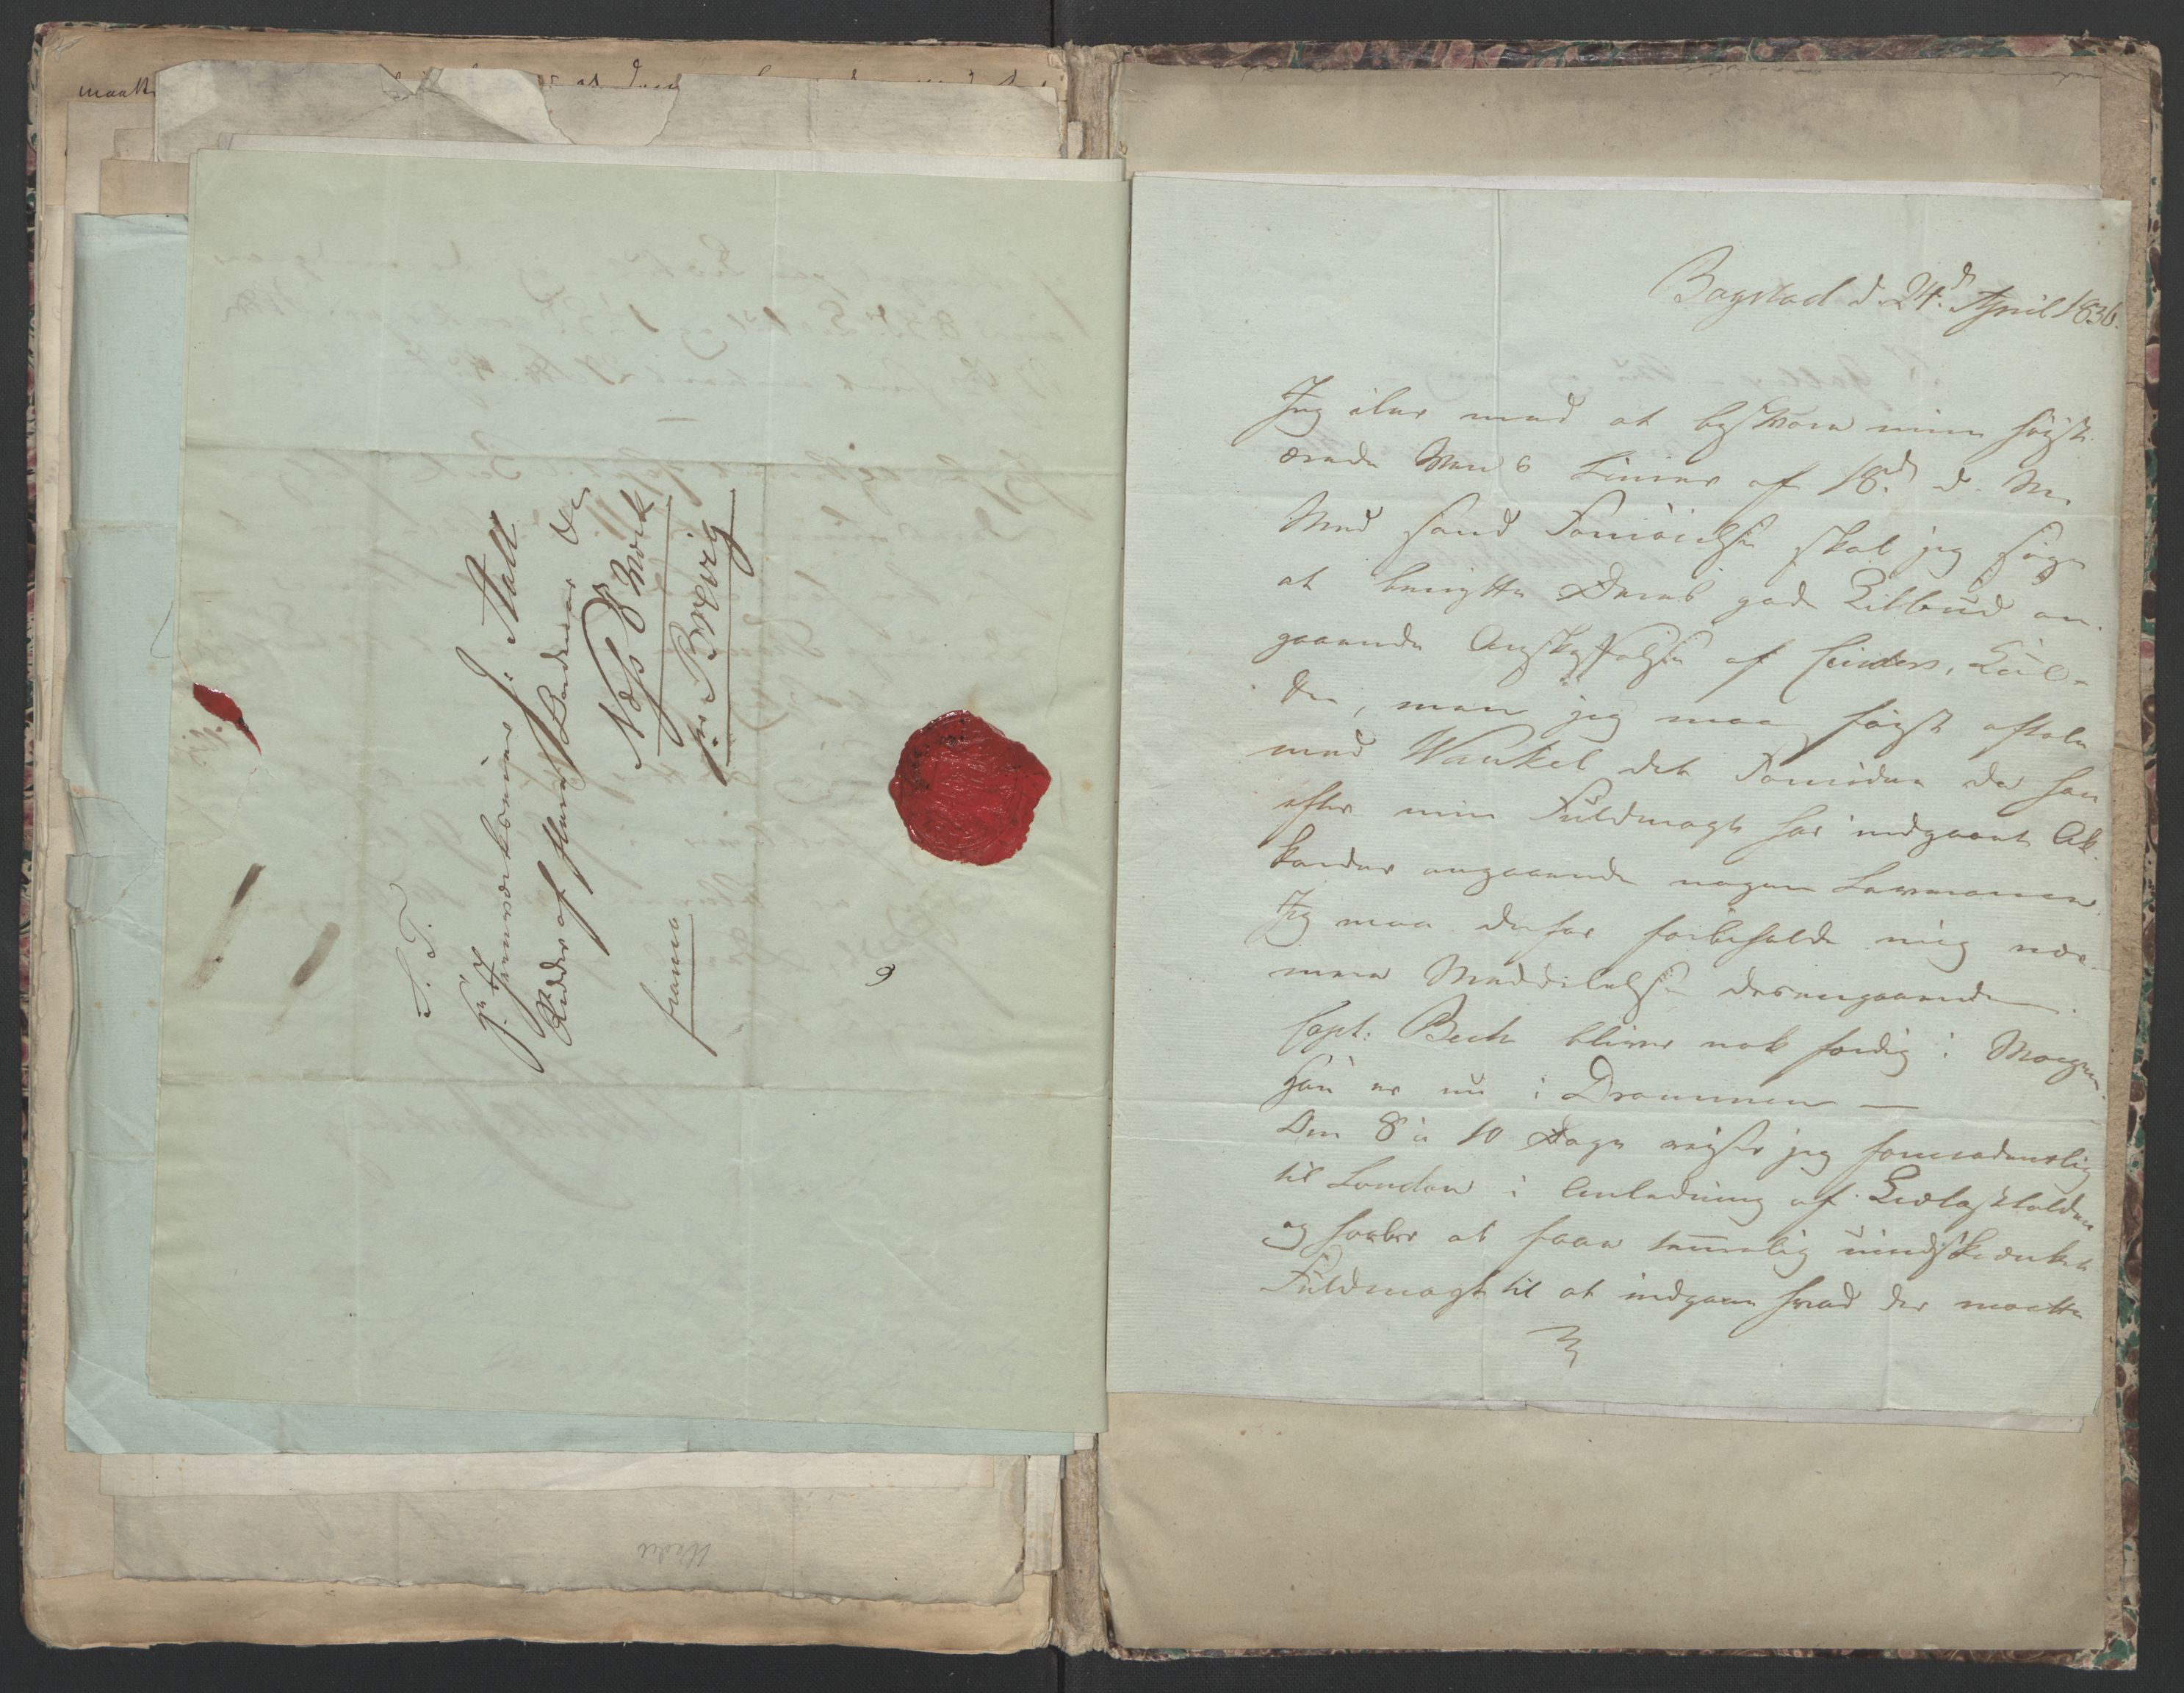 maatte
S. T.
Hr. Jernværkseier J. Aall
Ridder af flere Ordener &c
Næss Værk
pr. Brevig
franco
9
Wedel
Bogstad d. 24.d April 1836.
Jeg iler med at besvare min høist-
ærede Vens Linier af 18.d d. M.
Med sand Fornøielse skal jeg søge
at benytte Deres gode Tilbud an-
gaaende Anskaffelse af Cinders, Kul
&c, men jeg maa først aftale
med Wankel det Fornødne da han
efter min Fuldmagt har indgaaet Ak-
korder angaaende nogen Leverance.
Jeg maa derfor forbeholde mig nær-
mere Meddelelse desangaaende.
Capt: Bech bliver nok færdig i Morgen
Han er nu i Drammen —
Om 8 à 10 Dage reiser jeg formodentlig
til London i Anledning af Trælasttolden
og haaber at faae temmelig uindskrænket
Fuldmagt til at indgaae hvad der maatte